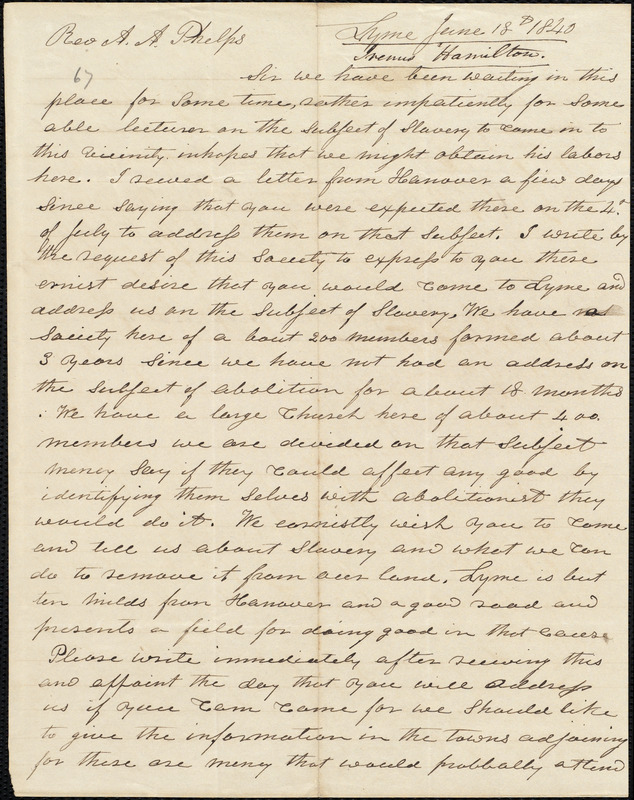 Rev A. A. Phelps
Lyme June 18th 1840
Irenus Hamilton.
67
Sir we have been waiting in this
place for some time, rather impatiently for some
able lecturer on the subject of Slavery to come in to
this vicinity inhopes that we might obtain his labors
here. I receved a letter from Hanover a fiew days
since saying that you were expected there on the 4th
of July to address them on that subject. I write by
the request of this Society to express to you there
ernist desire that you would come to Lyme and
address us on the subject of Slavery. We have
Society here of a bout 200 members formed about
3 years since we have not had an address on
the subject of abolition for about 18 months
. We have a large Church here of about 400.
members we are devided on that subject
meney say if they could affect any good by
identifying them selves with abolitionist they
would do it. We earnistly wish you to come
and tell us about Slavery and what we can
do to remove it from our land. Lyme is but
ten milds from Hanover and a good road and
presents a field for doing good in that cause
Please write immediately after receving this
and appoint the day that you will address
us if you Cam Come for we should like
to give the information in the towns adjoining
for there are meney that would probbally attend